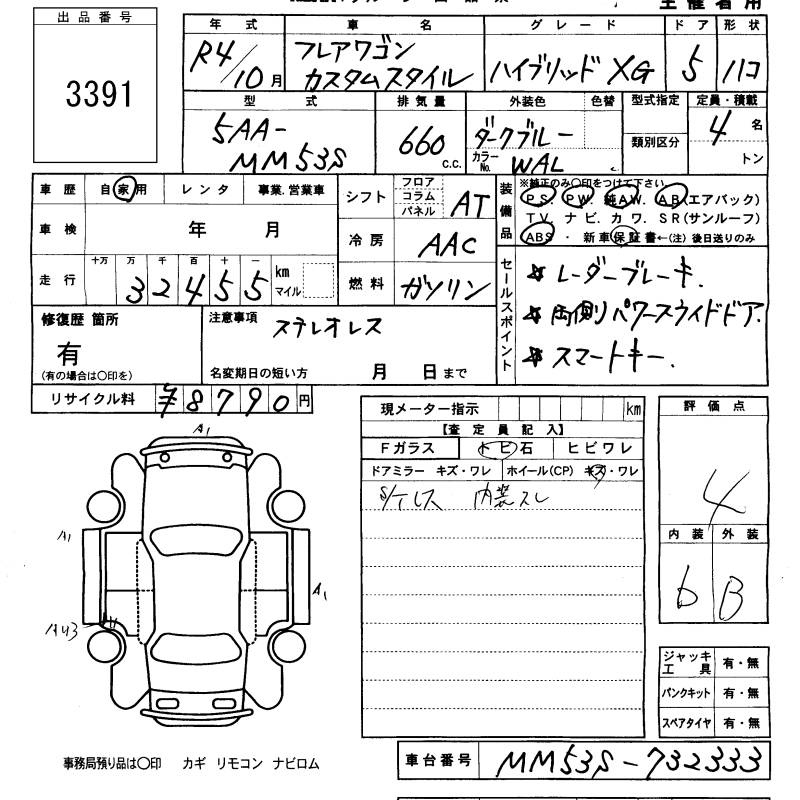 主催者用
出品番号
3391
年式 車名 グレード ドア 形状
R4/10月 フレアワゴン カスタムスタイル ハイブリッド XG 5 ハコ
型式 排気量 外装色 色替 型式指定 定員・積載
5AA-
MM53S
660 C.C.
ダークブルー
カラーNo. WAL
類別区分
4 名
トン
車歴 自家用 レンタ 事業.営業車
車検 年 月
走行 十万 万 千 百 十 一
32455 km マイル
シフト フロア コラム パネル AT
冷房 AAC
燃料 ガソリン
装備品
※純正のみ〇印をつけて下さい
P.S. P.W. 純A.W. A.B.(エアバック)
T.V. ナビ. カワ. S.R(サンルーフ)
ABS ・ 新車保証書←(注) 後日送りのみ
セールスポイント
☆ レーダーブレーキ.
☆ 両側パワースライドドア.
☆ スマートキー.
修復歴 箇所
有
(有の場合は〇印を)
注意事項 ステレオレス
名変期日の短い方 月 日まで
リサイクル料 ¥8790円
現メーター指示 km
【査定員記入】
Fガラス トビ石 ヒビワレ
ドアミラー キズ・ワレ ホイール(CP) キズ・ワレ
S/テレス 内装スレ
評価点
4
内装 外装
b B
A1
A1
A1
AU3
ジャッキ工具 有・無
パンクキット 有・無
スペアタイヤ 有・無
事務局預り品は〇印 カギ リモコン ナビロム
車台番号 MM53S-732333